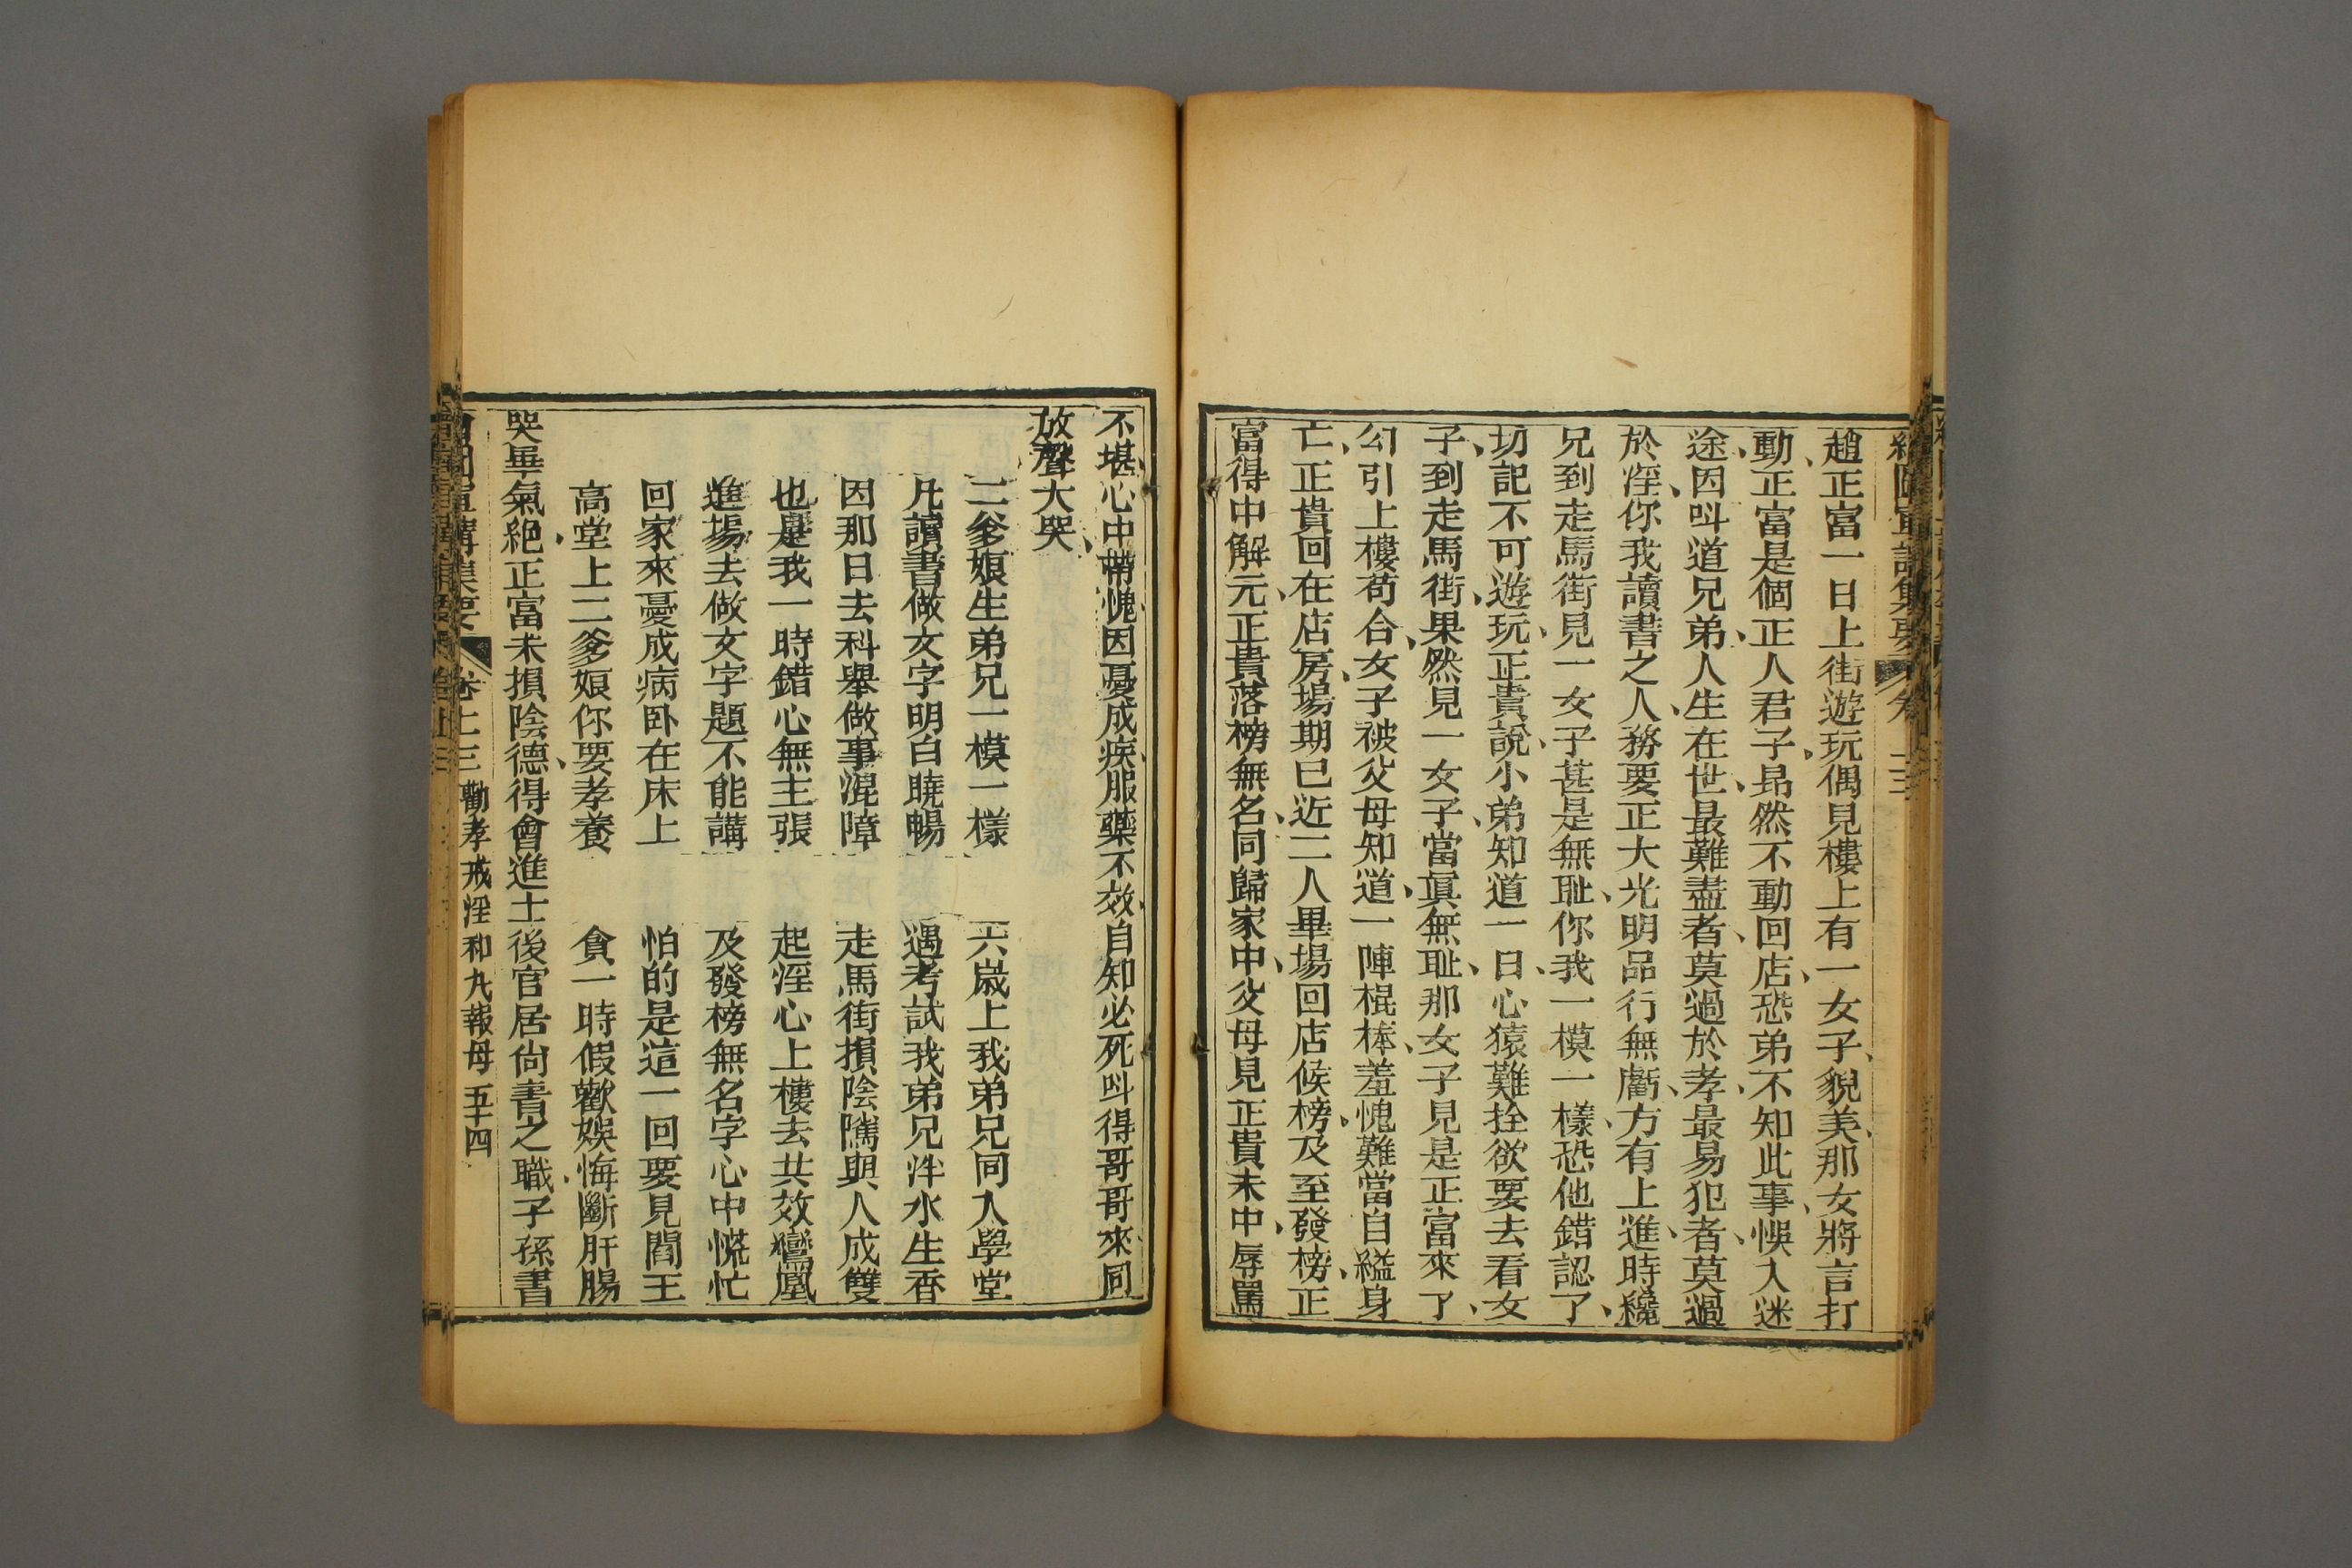 趙正富一日上街遊玩偶見樓上有一女子貌美那女將言打
動正富是個正人君子昻然不動回店恐弟不知此事悞入迷
途因呌道兄弟人生在世最難盡者莫過於孝最易犯者莫過
於淫你我讀書之人務要正大光明品行無虧方有上進時纔
兄到走馬街見一女子甚是無耻你我一模一樣恐他錯認了
切記不可遊玩正貴說小弟知道一日心猿難拴欲要去看女
子到走馬街果然見一女子當眞無耻那女子見是正富來了
勾引上樓苟合女子被父母知道一陣棍棒羞愧難當自縊身
亡正貴回在店房塲期已近二人畢塲回店候榜及至發榜正
富得中解元正貴落榜無名同歸家中父母見正貴未中辱罵
不堪心中帶愧因憂成疾服藥不效自知必死呌得哥哥來同
放聲大哭
二爹娘生弟兄一模一樣　六歲上我弟兄同入學堂
凡讀書做文字明白曉暢　遇考試我弟兄泮水生香
因那日去科舉做事混障　走馬街損陰隲與人成雙
也是我一時錯心無主張　起淫心上樓去共效鸞凰
進塲去做文字題不能講　及發榜無名字心中慌忙
回家來憂成病卧在床上　怕的是這一回要見閻王
高堂上二爹娘你要孝養　貪一時假歡娛悔斷肝腸
哭畢氣絕正富未損陰德得會進士後官居尙書之職子孫書
宣講集要　卷十三　勸孝戒淫和丸報母　五十四